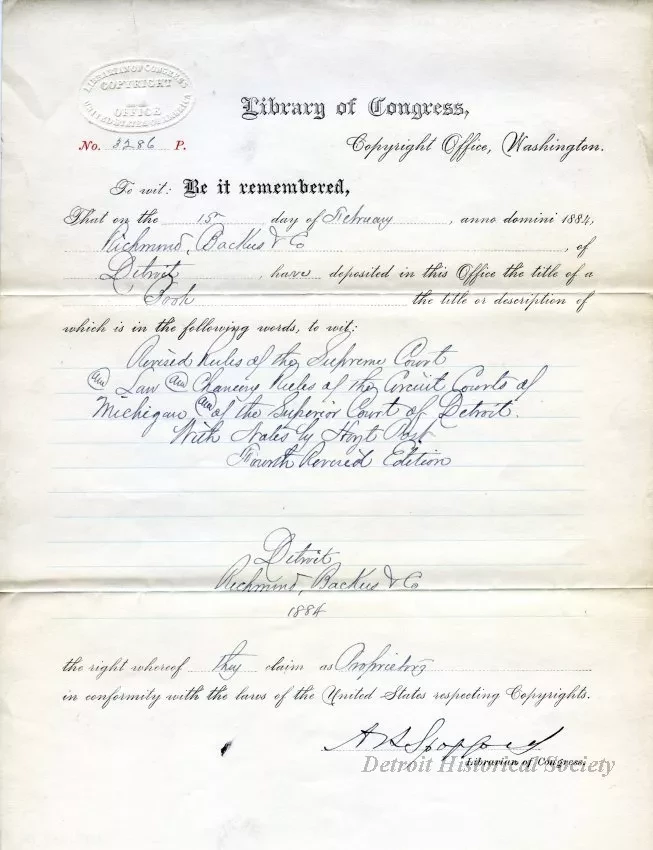 LIBRARIAN OF CONGRESS
COPYRIGHT
OFFICE
UNITED STATES OF AMERICA
Library of Congress,
No. 3286 P.
Copyright Office, Washington.
To wit: Be it remembered,
That on the 15" day of February, anno domini 1884,
Richmond, Backus & Co, of
Detroit, have deposited in this Office the title of a
Book the title or description of
which is in the following words, to wit:
Revised Rules of the Supreme Court
and Law and Chancery Rules of the Circuit Courts of
Michigan and of the Superior Court of Detroit.
With Notes by Hoyt Post
Fourth Revised Edition
Detroit
Richmond, Backus & Co
1884
the right whereof they claim as Proprietors
in conformity with the laws of the United States respecting Copyrights.
A R Spofford
Librarian of Congress.
Detroit Historical Society